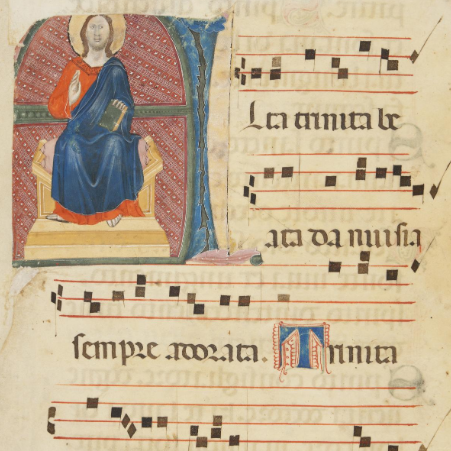 Alta trinita be
ata da nui sia
sempre adorata. Trinita